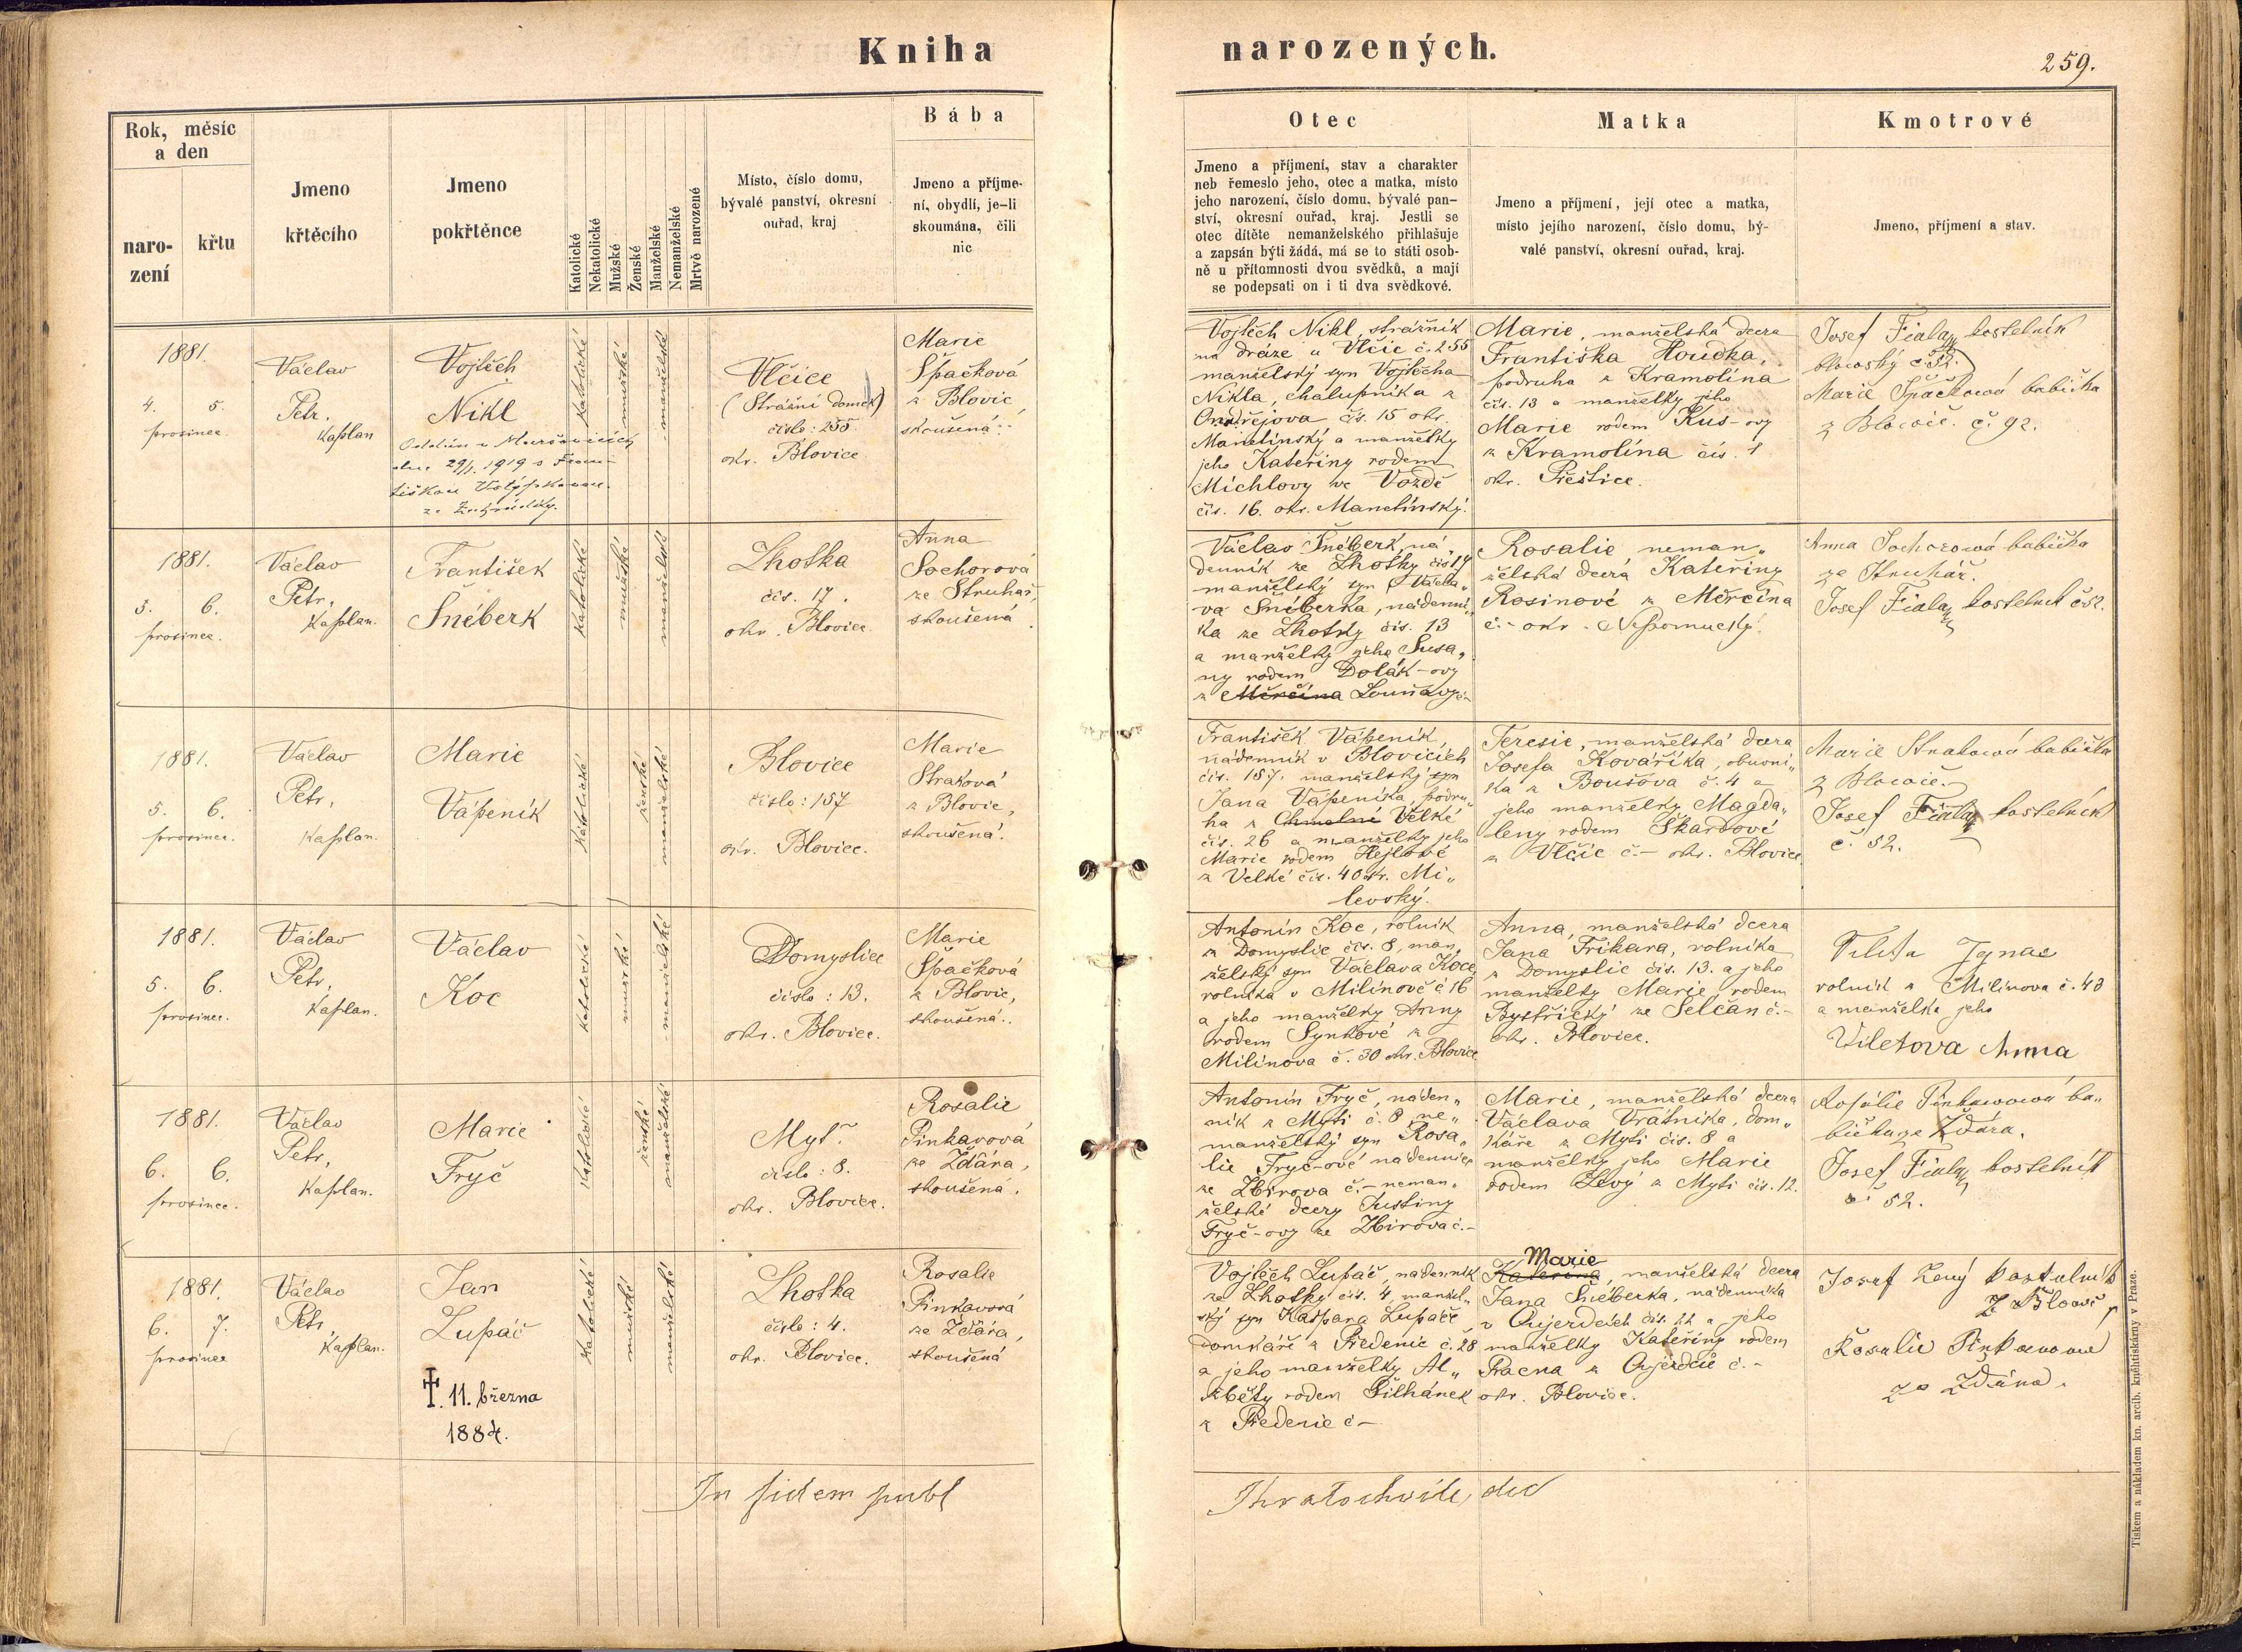 Kniha narozených.
259.
Rok, měsíc
a den
naro-
zení
křtu
Jmeno
křtěcího
Jmeno
pokřtěnce
Katolické
Nekatolické
Mužské
Ženské
Manželské
Nemanželské
Mrtvě narozené
Místo, číslo domu,
bývalé panství, okresní
ouřad, kraj
Bába
Jmeno a příjme-
ní, obydlí, je-li
skoumána, čili
nic
Otec
Jmeno a příjmení, stav a charakter
neb řemeslo jeho, otec a matka, místo
jeho narození, číslo domu, bývalé pan-
ství, okresní ouřad, kraj. Jestli se
otec dítěte nemanželského přihlašuje
a zapsán býti žádá, má se to státi osob-
ně u přítomnosti dvou svědků, a mají
se podepsati on i ti dva svědkové.
Matka
Jmeno a příjmení, její otec a matka,
místo jejího narození, číslo domu, bý-
valé panství, okresní ouřad, kraj.
Kmotrové
Jmeno, příjmení a stav.
1881.
4. 5.
prosince
Václav
Petr.
Kaplan
Vojtěch
Nikl
dne 29/1. 1919 s Fran-
tiškou
katolické
mužské
manželské
Vlčice
(Strážní domek)
číslo: 255.
okr. Blovice
Marie
Špačková
z Blovic,
skoušená.
Vojtěch Nikl, strážník
na dráze u Vlčic č. 255
manželský syn Vojtěcha
Nikla, chalupníka z
Ondřejova čís. 15 okr.
Manětínský a manželky
jeho Kateřiny rodem
Michlovy ve Vozdě
čís. 16. okr. Manětínský.
Marie, manželská dcera
Františka Houdka,
podruha z Kramolína
čís. 13 a manželky jeho
Marie rodem Kus-ovy
z Kramolína čís. 1
okr. Přeštice.
Josef Fiala, kostelník
blovický č 52.
Marie Špačková babička
z Blovic. č. 92.
1881.
5. 6.
prosince.
Václav
Petr,
Kaplan.
František
Šnéberk
katolické
mužské
manželské
Lhotka
čís. 17.
okr. Blovice
Anna
Sochorová
ze Struhař,
skoušená
Václav Šnéberk, ná„
denník ze Lhotky čís 17
manželský syn Václa„
va Šnéberka, nádenní„
ka ze Lhotky čís. 13
a manželky jeho Susa„
ny rodem Dolák-ovy
z Měrčína Louňav č-
Rosalie neman„
želská dcera Kateřiny
Rosinové z Měrčína
č.- okr. Nepomucký.
Anna Sochorová babička
ze Struhář.
Josef Fiala, kostelník č 52.
1881.
5. 6.
prosince.
Václav
Petr,
Kaplan.
Marie
Vápeník
katolické
ženské
manželské
Blovice
číslo: 157
okr. Blovice.
Marie
Straková
z Blovic,
skoušená.
František Vápeník,
nádenník v Blovicích
čís. 157. manželský syn
Jana Vápeníka, podru„
ha z Chmelné Velké
čís. 26 a manželky jeho
Marie rodem Hejlové
z Velké čís. 40 okr. Mi„
levský.
Teresie, manželská dcera
Josefa Kovaříka, obuvní„
ka z Boušova č. 4 a
jeho manželky Magda„
leny rodem Škardové
z Vlčic č.- okr. Blovice
Marie Straková babička
z Blovic.
Josef Fiala, kostelník
č. 52.
1881.
5. 6.
prosince.
Václav
Petr,
Kaplan.
Václav
Koc
katolické
mužské
manželské
Domyslice
číslo: 13.
okr. Blovice.
Marie
Špačková
z Blovic,
skoušená.
Antonín Koc, rolník
z Domyslic čís. 8, man„
želský syn Václava Koce,
rolníka v Milínově č 16
a jeho manželky Anny
rodem Synkové z
Milínova č. 30 okr. Blovice
Anna, manželská dcera
Jana Trikara, rolníka
z Domyslic čís. 13. a jeho
manželky Marie rodem
Bystřický ze Selčan č.-
okr. Blovice.
Vileta Ignac
rolník z Milínova č. 43
a manželka jeho
Viletova Anna
1881.
6. 6.
prosince.
Václav
Petr,
Kaplan.
Marie
Fryč
katolické
ženské
manželské
Myť.
číslo: 8.
okr. Blovice.
Rosalie
Pinkavová
ze Ždára,
skoušená.
Antonín Fryč, náden„
ník z Myti č. 8, ne„
manželský syn Rosa„
lie Fryč-ové nádennice
ze Zbirova č.- neman„
želské dcery Justiny
Fryč-ovy ze Zbirova č.-
Marie, manželská dcera
Václava Vrátníka, dom„
káře z Myti čís. 8 a
manželky jeho Marie
rodem Levý z Myti čís. 12.
Rosalie Pinkavová ba„
bička ze Ždára.
Josef Fiala, kostelník
č 52.
1881.
6. 7.
prosince
Václav
Petr
Kaplan.
Jan
Lupáč
†. 11. března
1884.
katolické
mužské
manželské
Lhotka
číslo: 4.
okr. Blovice.
Rosalie
Pinkavová
ze Ždára,
skoušená
Vojtěch Lupáč, nádenník
ze Lhotky čís. 4, manžel„
ský syn Kašpara Lupáče
domkáře z Předenic č. 28
a jeho manželky Al„
žběty rodem Šilhánek
z Předenic č-
Marie
Kateřina, manželská dcera
Jana Šnéberka, nádenníka
v Oujezdcích čís. 22 a jeho
manželky Kateřiny rodem
Pracna z Oujezdce č.-
okr. Blovice.
Josef Levý kostelník
z Blovic
Rosalie Pinkavová
ze Ždára.
In fidem publ
Tiskem a nákladem kn. arcib. knihtiskárny v Praze.